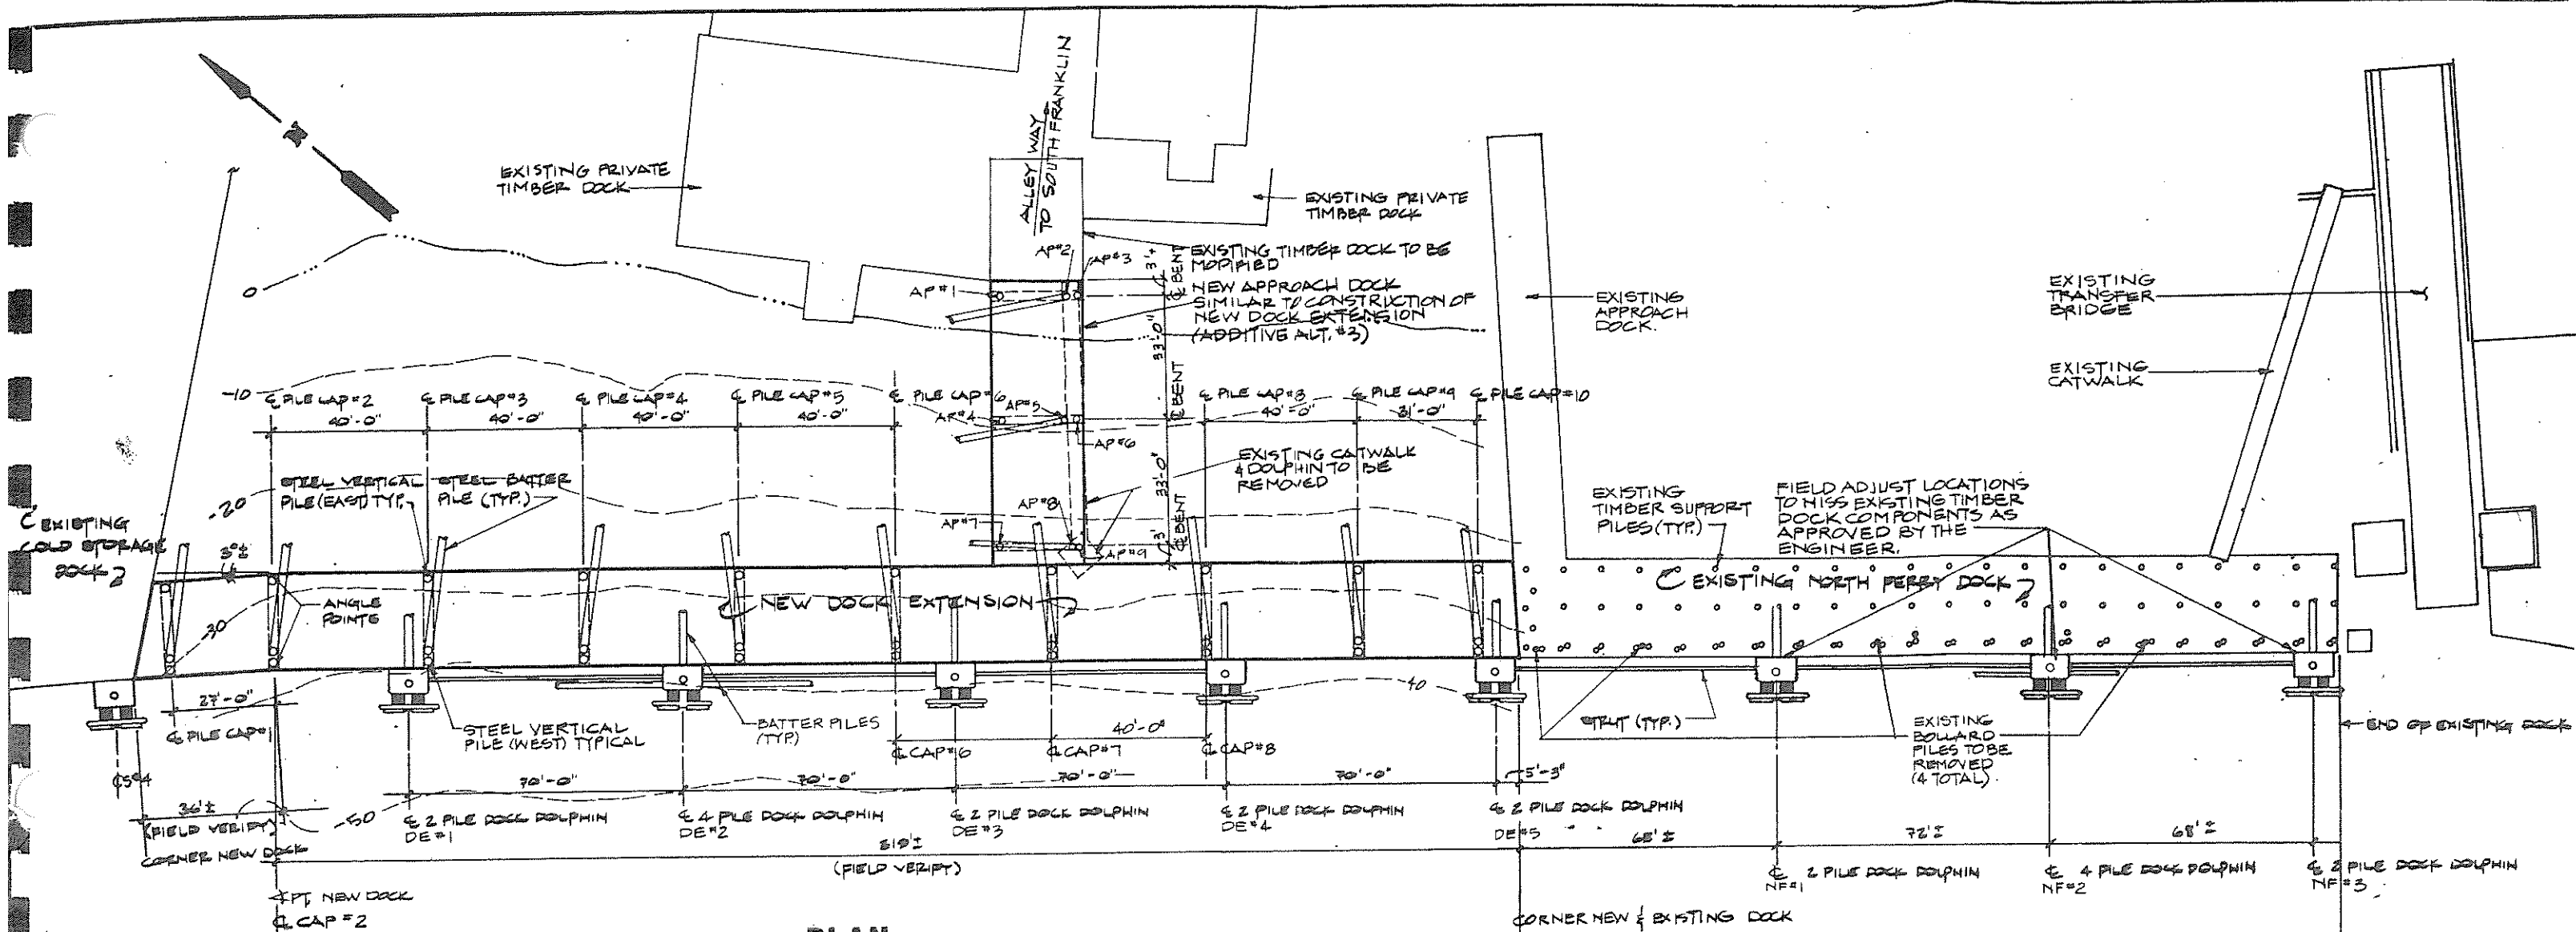 ALLEY WAY
TO SOUTH FRANKLIN
EXISTING PRIVATE
TIMBER DOCK
EXISTING PRIVATE
TIMBER DOCK
AP#2
AP#3
AP#1
EXISTING TIMBER DOCK TO BE
MODIFIED
NEW APPROACH DOCK
SIMILAR TO CONSTRUCTION OF
NEW DOCK EXTENSION
(ADDITIVE ALT. #3)
3'±
℄ BENT
33'-0"
℄ BENT
33'-0"
℄ BENT
3'
EXISTING
APPROACH
DOCK.
EXISTING
TRANSFER
BRIDGE
EXISTING
CATWALK
0
-10
℄ PILE CAP #2
℄ PILE CAP #3
℄ PILE CAP #4
℄ PILE CAP #5
℄ PILE CAP #6
℄ PILE CAP #8
℄ PILE CAP #9
℄ PILE CAP #10
40'-0"
40'-0"
40'-0"
40'-0"
40'-0"
31'-0"
AP#4
AP#5
AP#6
EXISTING CATWALK
& DOLPHIN TO BE
REMOVED
STEEL VERTICAL
PILE (EAST) TYP.
STEEL BATTER
PILE (TYP.)
-20
EXISTING
COLD STORAGE
DOCK
3°±
AP#7
AP#8
AP#9
EXISTING
TIMBER SUPPORT
PILES (TYP.)
FIELD ADJUST LOCATIONS
TO MISS EXISTING TIMBER
DOCK COMPONENTS AS
APPROVED BY THE
ENGINEER.
ANGLE
POINTS
NEW DOCK EXTENSION
EXISTING NORTH FERRY DOCK
-30
-40
27'-0"
℄ PILE CAP #1
STEEL VERTICAL
PILE (WEST) TYPICAL
BATTER PILES
(TYP)
40'-0"
℄ CAP #6
℄ CAP #7
℄ CAP #8
STRUT (TYP.)
EXISTING
BOLLARD
PILES TO BE
REMOVED
(4 TOTAL).
END OF EXISTING DOCK
CS#4
70'-0"
70'-0"
70'-0"
70'-0"
5'-3"
36'±
(FIELD VERIFY)
CORNER NEW DOCK
-50
℄ 2 PILE DOCK DOLPHIN
DE#1
℄ 4 PILE DOCK DOLPHIN
DE#2
℄ 2 PILE DOCK DOLPHIN
DE#3
℄ 2 PILE DOCK DOLPHIN
DE#4
℄ 2 PILE DOCK DOLPHIN
DE#5
68'±
72'±
68'±
319'±
(FIELD VERIFY)
℄ 2 PILE DOCK DOLPHIN
NF#1
℄ 4 PILE DOCK DOLPHIN
NF#2
℄ 2 PILE DOCK DOLPHIN
NF#3
∠PT. NEW DOCK
℄ CAP #2
CORNER NEW & EXISTING DOCK